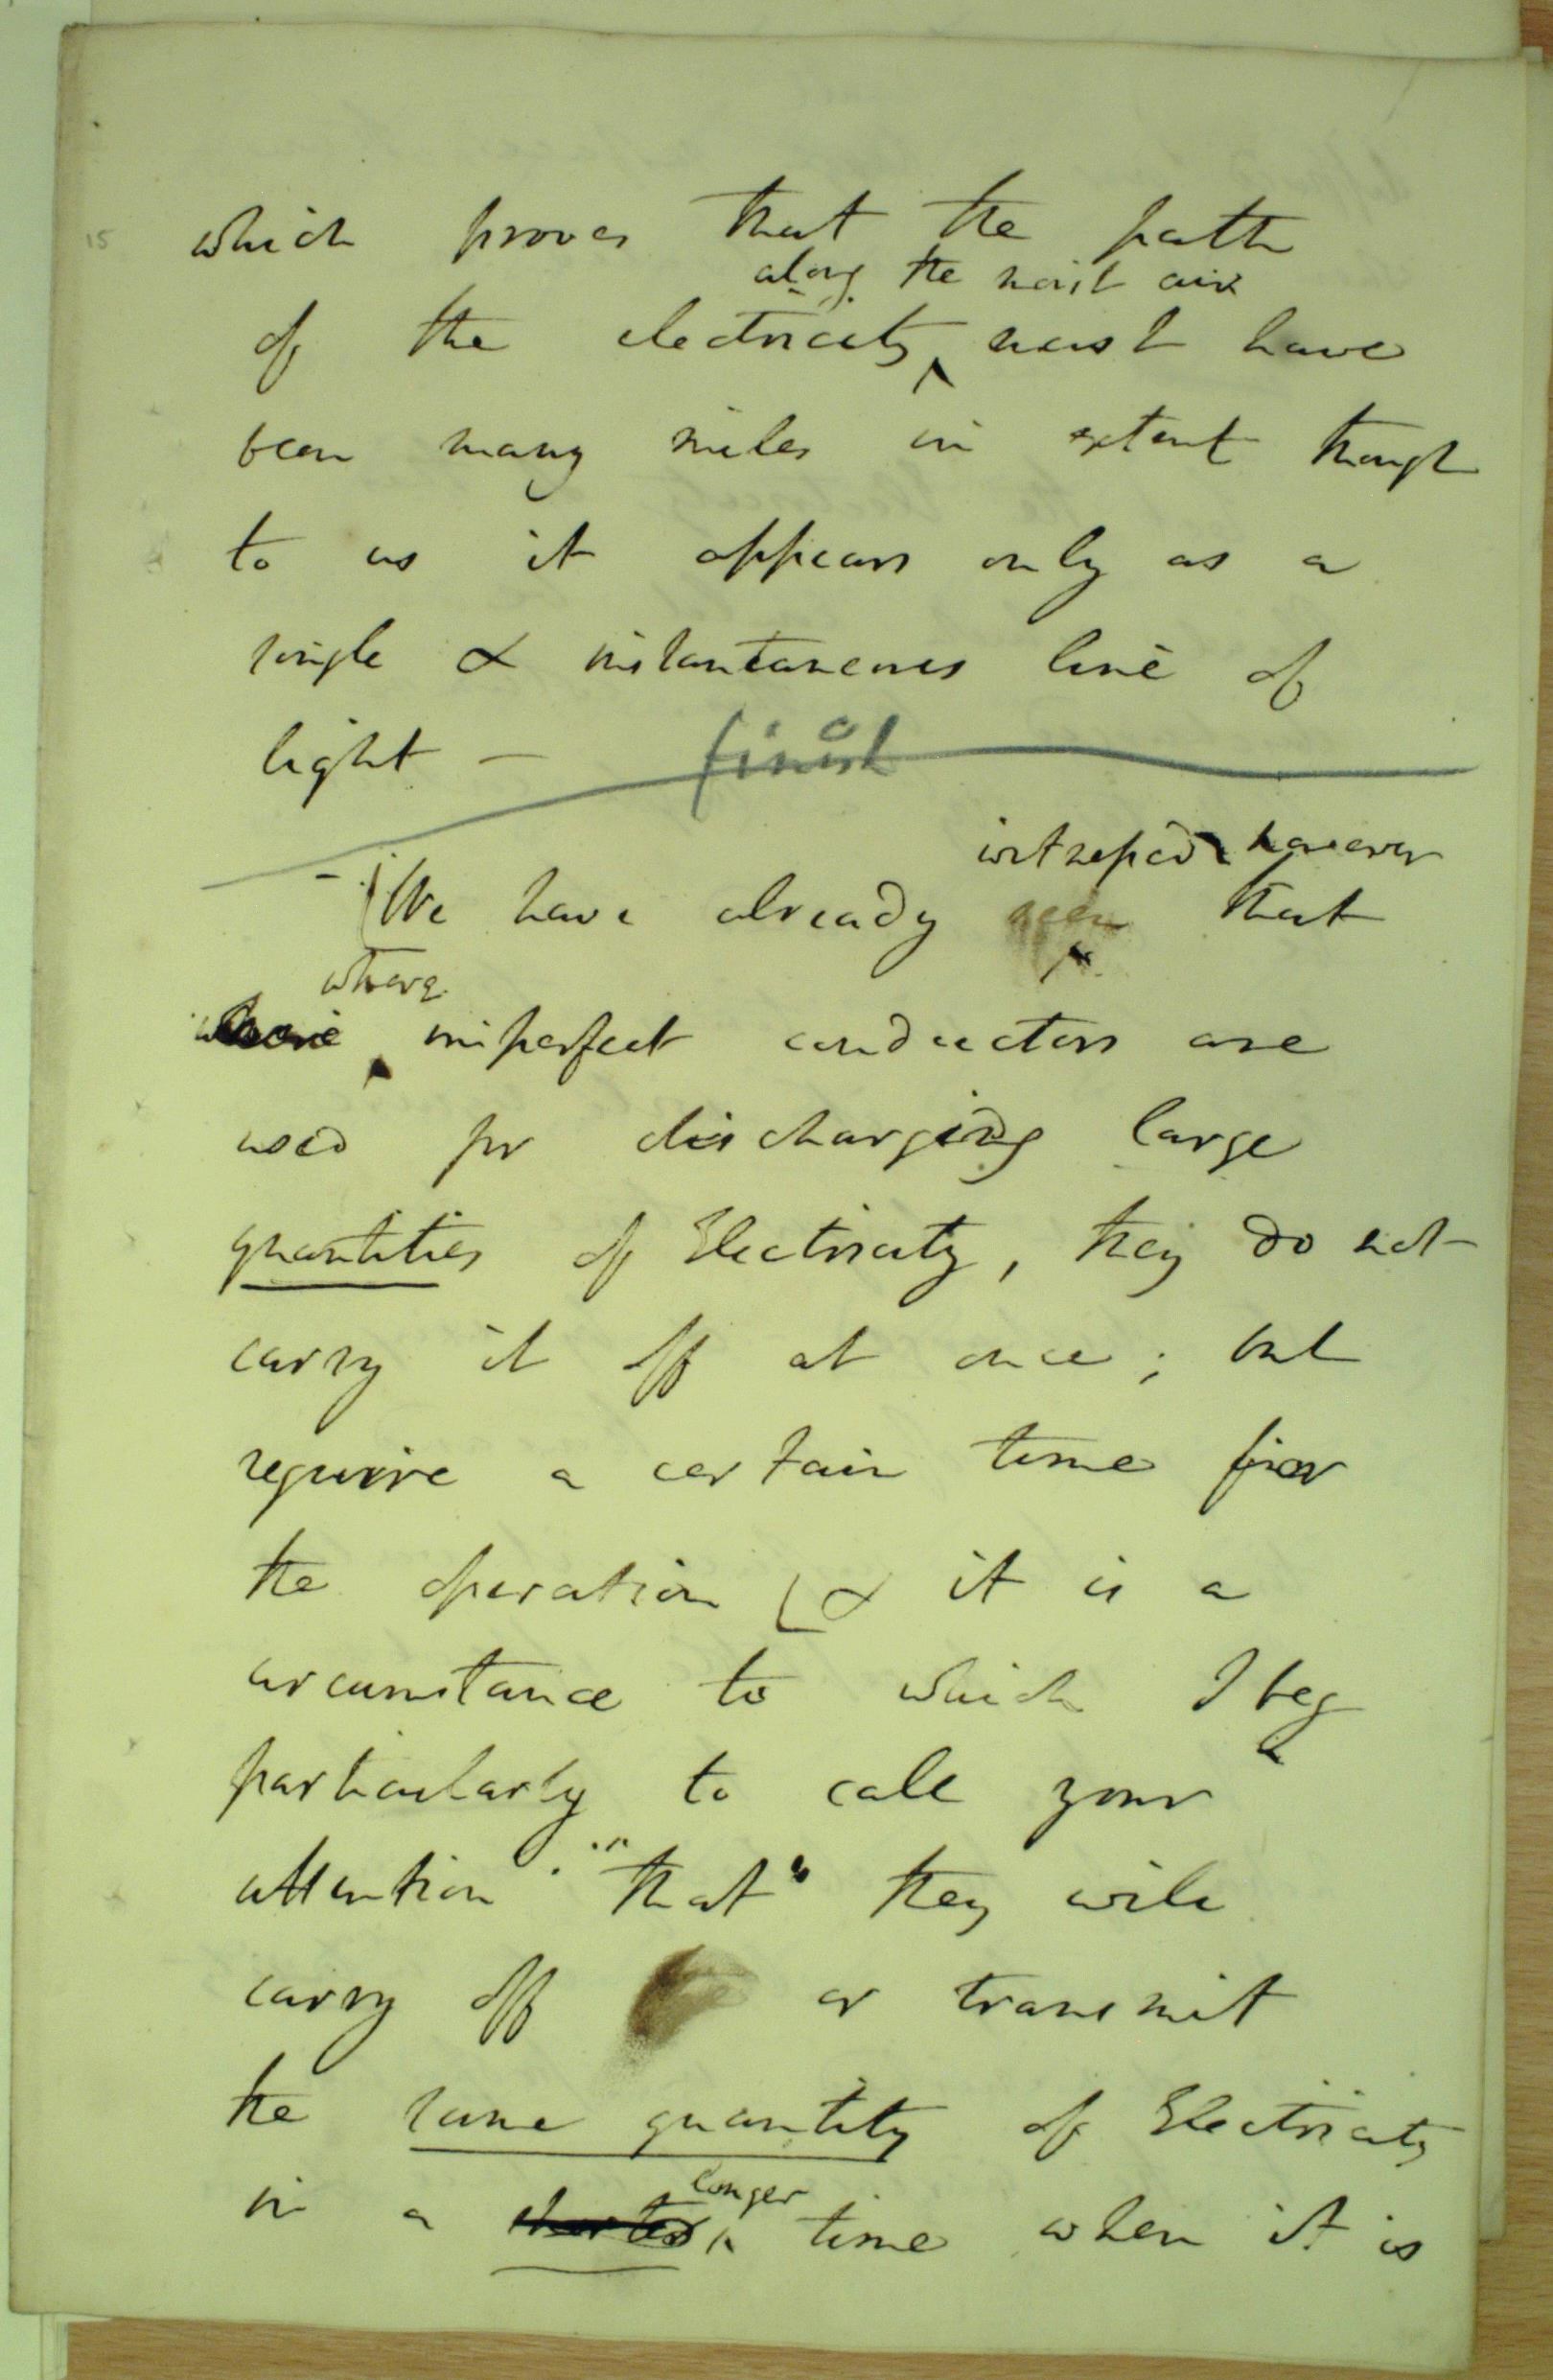 15
which proves that the path
along the moist air
of the electricity must have
been many miles in extent though
to us it appears only as a
single & instantaneous line of
light –
finish
witnessed however
We have already seen that
where
where imperfect conductors are
used for discharging large
quantities of Electricity, they do not
carry it off at once; but
require a certain time for
the operation & it is a
circumstance to which I beg
particularly to call your
attention. "that" they will
carry off or transmit
the same quantity of Electricity
longer
in a shorter time when it is